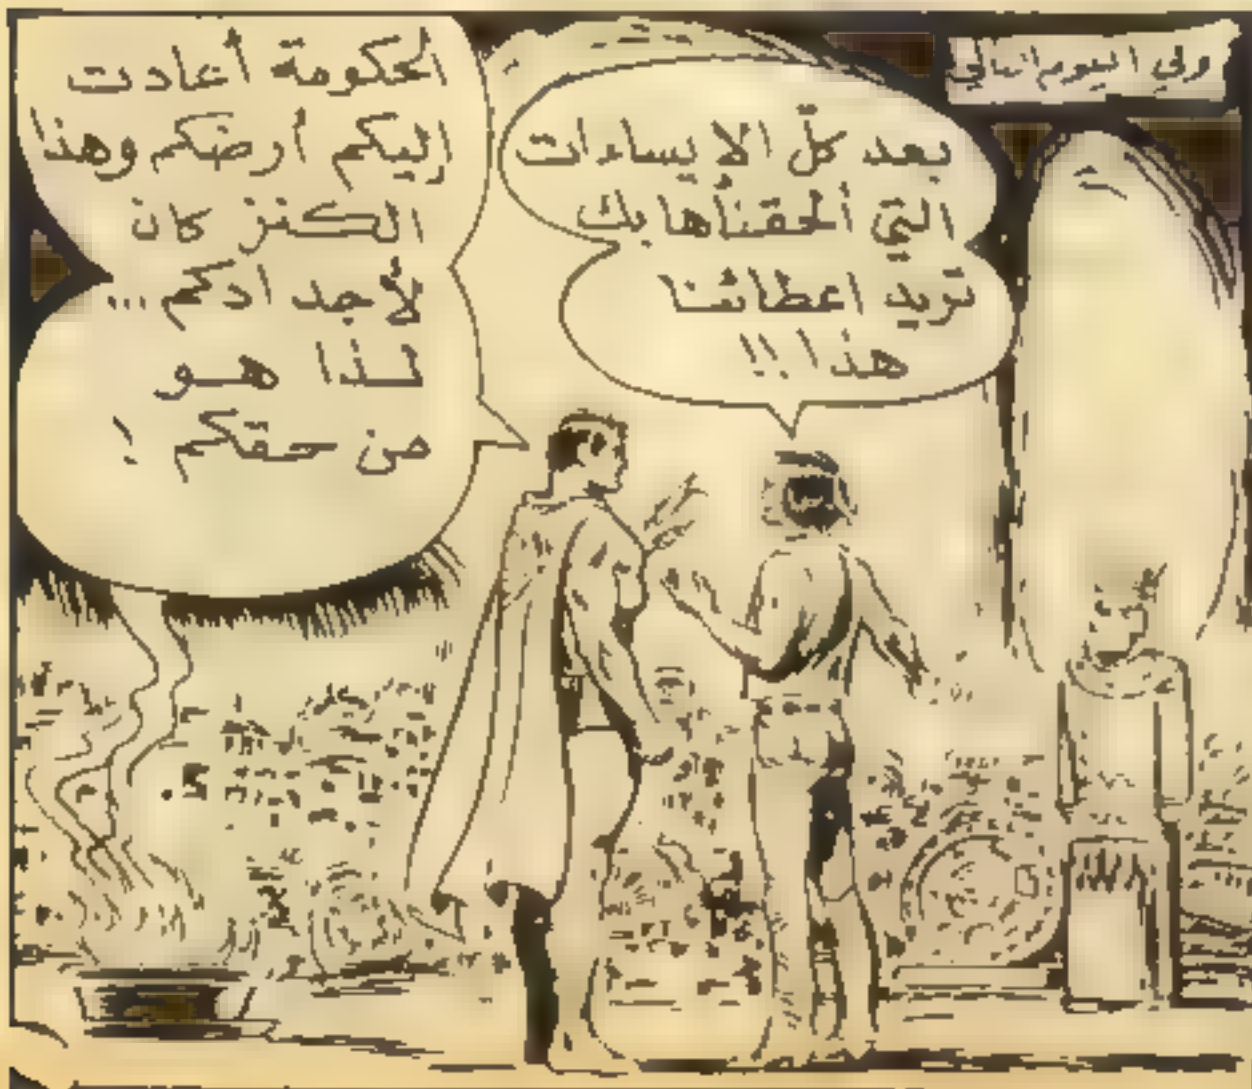 وفي اليوم التالي
بعد كلّ الإيساءات
التي ألحقناها بك
تريد اعطائنا
هذا !!
الحكومة أعادت
إليكم أرضكم وهذا
الكنز كان
لأجدادكم ...
لـذا هـو
من حقكم !